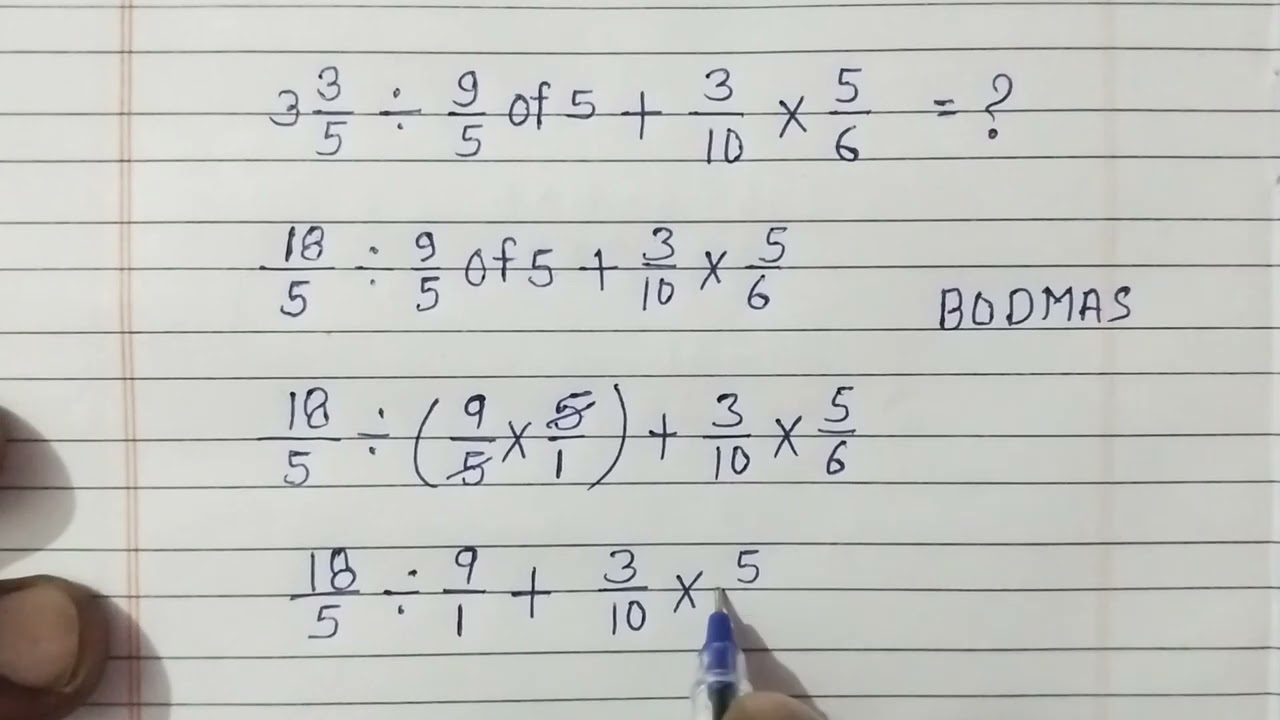 3 3/5 ÷ 9/5 of 5 + 3/10 × 5/6 = ?
18/5 ÷ 9/5 of 5 + 3/10 × 5/6
BODMAS
18/5 ÷ (9/5 × 5/1) + 3/10 × 5/6
18/5 ÷ 9/1 + 3/10 × 5